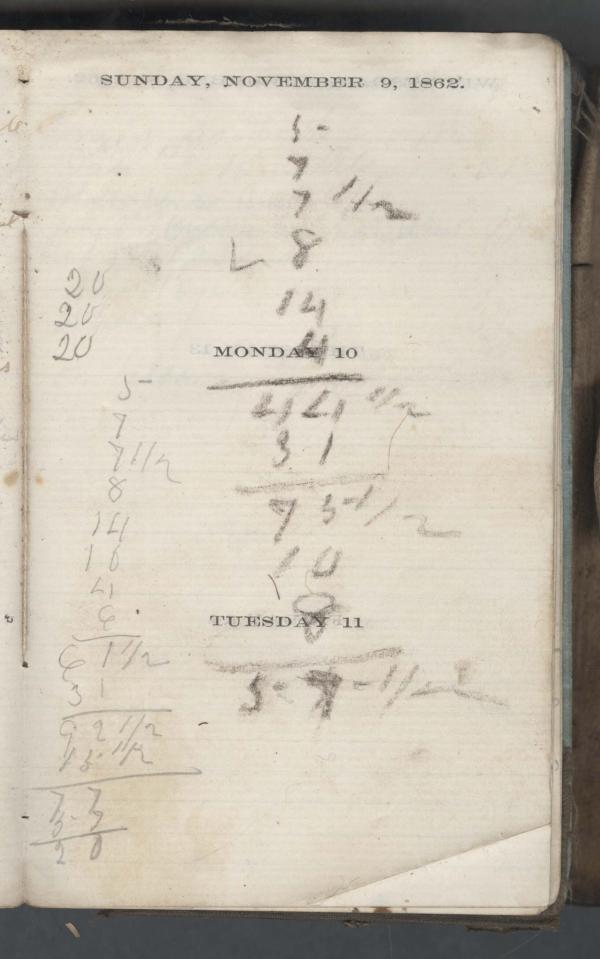 SUNDAY, NOVEMBER 9, 1862.
5
7
7 1/2
8
14
4
MONDAY 10
44 1/2
31
75 1/2
10
8
TUESDAY 11
57 1/2
20
20
20
5
7
7 1/2
8
14
10
4
6
61 1/2
31
92 1/2
15 1/2
77
57
20